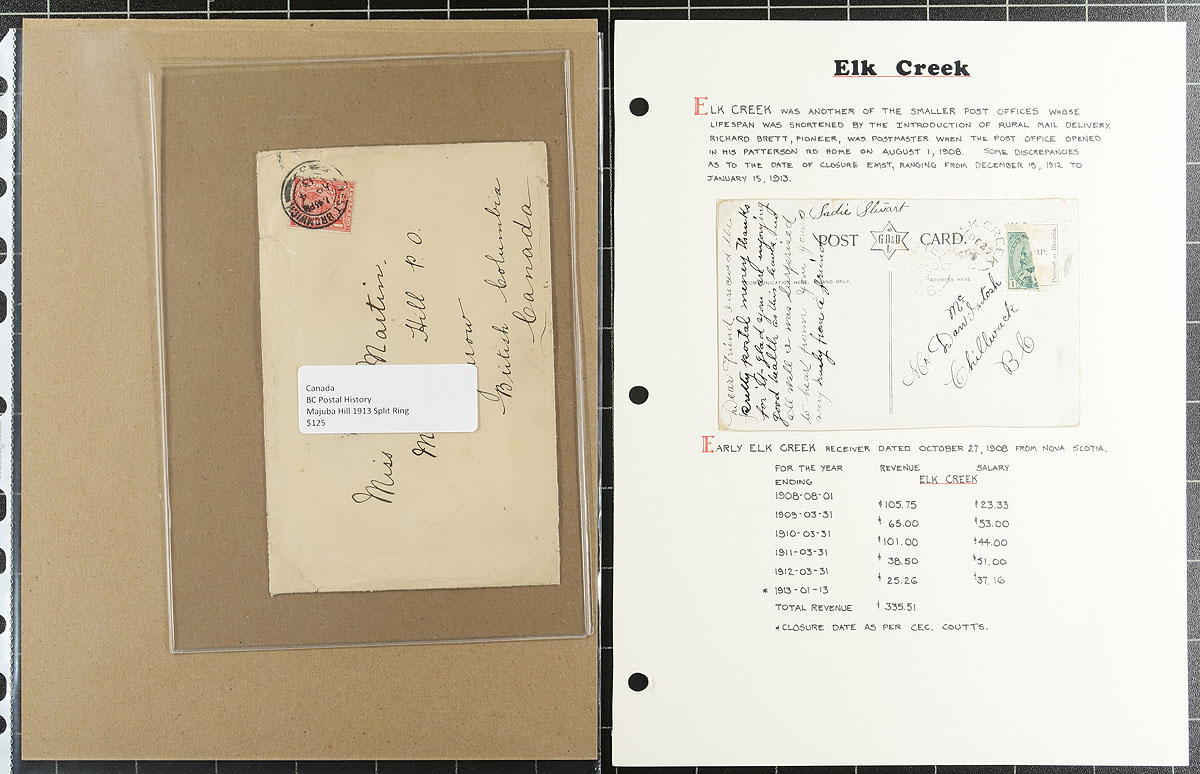 WEST BROMWICH
1.45 PM
Miss Martin.
M Hill P. O.
British Columbia
Canada
Canada
BC Postal History
Majuba Hill 1913 Split Ring
$125
Elk Creek
ELK CREEK WAS ANOTHER OF THE SMALLER POST OFFICES WHOSE
LIFESPAN WAS SHORTENED BY THE INTRODUCTION OF RURAL MAIL DELIVERY.
RICHARD BRETT, PIONEER, WAS POSTMASTER WHEN THE POST OFFICE OPENED
IN HIS PATTERSON RD HOME ON AUGUST 1, 1908. SOME DISCREPANCIES
AS TO THE DATE OF CLOSURE EXIST, RANGING FROM DECEMBER 15, 1912 TO
JANUARY 15, 1913.
Sadie Stuart
POST CARD.
Dear Friend I received the
pretty postal many thanks
for it. Glad you are enjoying
good health as this leaves just
all well I was surprised
to hear from you
very truly from a friend
ADDRESS HERE
Printed in Bavaria.
Mr Dan McIntosh
Chillwack
BC
EARLY ELK CREEK RECEIVER DATED OCTOBER 27, 1908 FROM NOVA SCOTIA.
FOR THE YEAR REVENUE SALARY
ENDING ELK CREEK
1908-08-01
$105.75 $23.33
1909-03-31
$ 65.00 $53.00
1910-03-31
$101.00 $44.00
1911-03-31
$ 38.50 $51.00
1912-03-31
$ 25.26 $37.16
* 1913-01-13
TOTAL REVENUE $ 335.51
*CLOSURE DATE AS PER CEC. COUTTS.